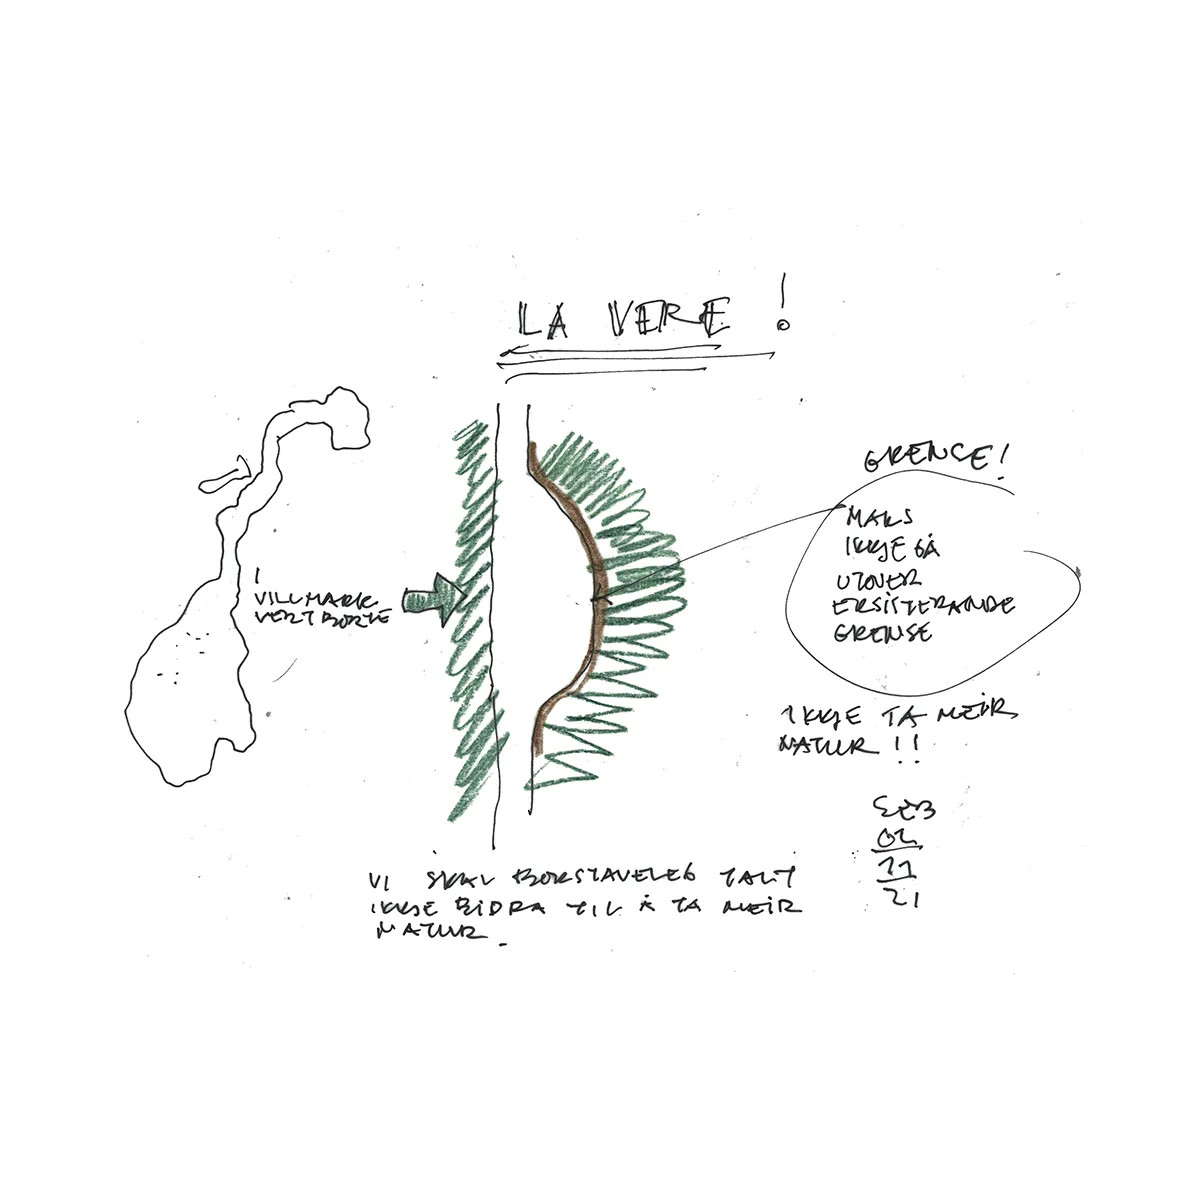 LA VERE!
GRENSE!
MAKS
IKKJE GÅ
UTOVER
EKSISTERANDE
GRENSE
VILLMARK
VERT BORTE
IKKJE TA MEIR
NATUR!!
02
11
21
VI SKAL BOKSTAVELEG TALT
IKKJE BIDRA TIL Å TA MEIR
NATUR.